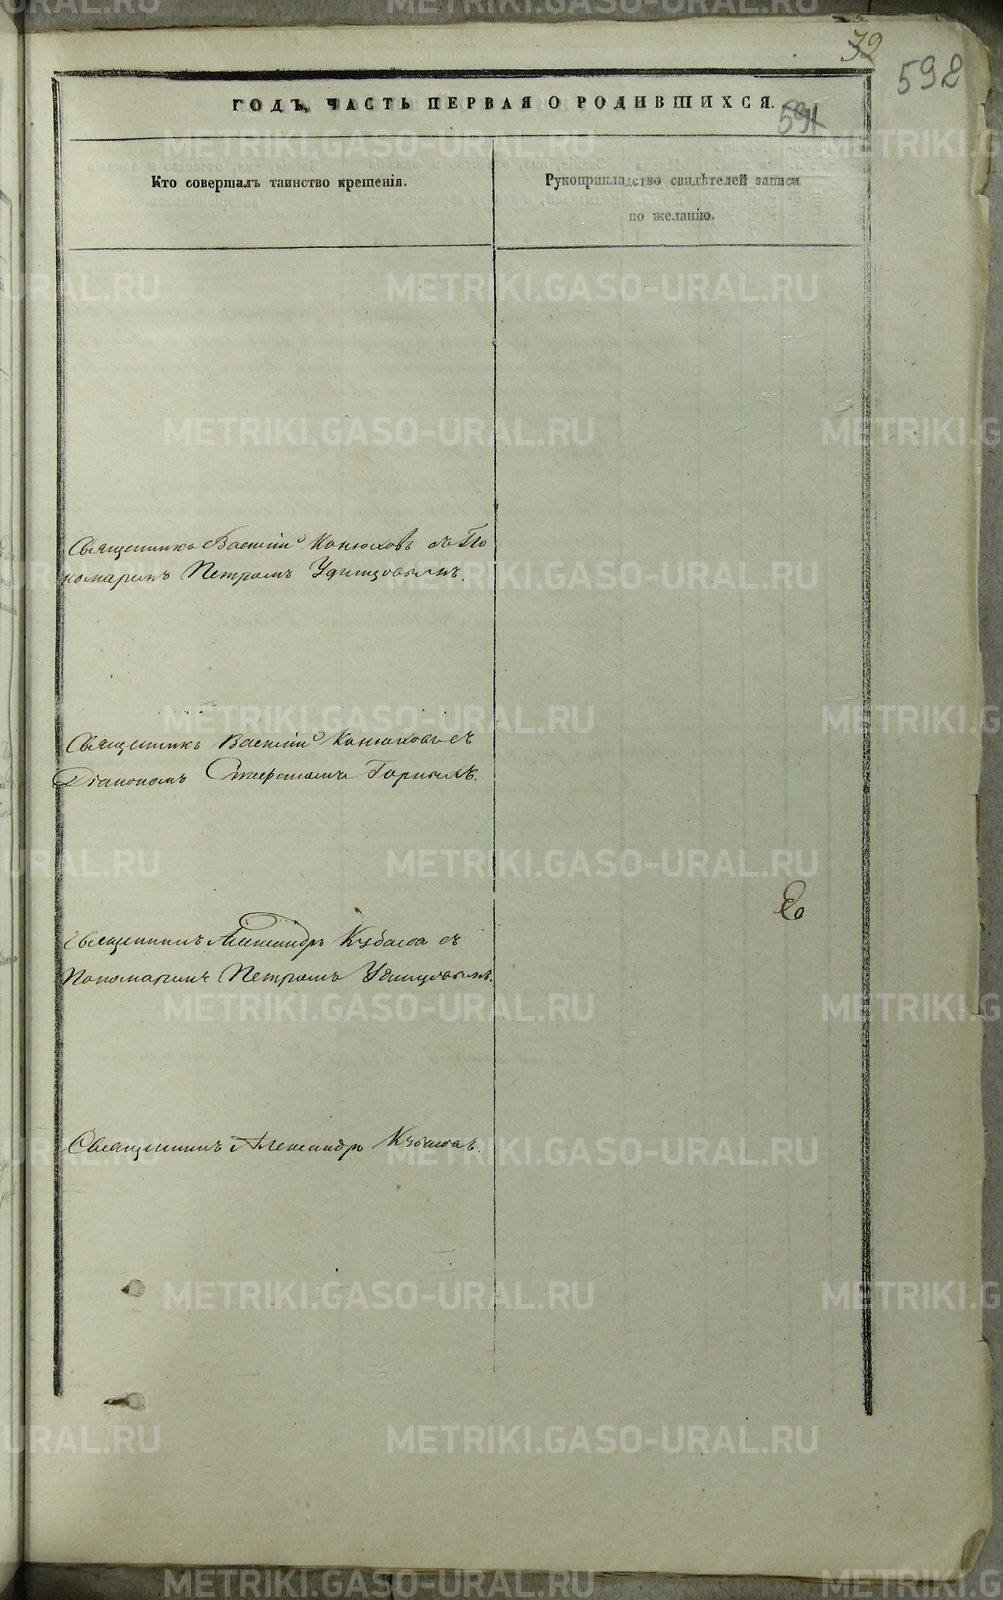 32
598
591
ГОДЪ, ЧАСТЬ ПЕРВАЯ О РОДИВШИХСЯ.
Кто совершалъ таинство крещенія.
Рукоприкладство свидѣтелей записи
по желанію.
Священникъ Василій Конюховъ съ По
номаремъ Петромъ Удинцовымъ.
Священникъ Василій Конюховъ съ
Діакономъ Стефаномъ
Священникъ Александръ съ
Пономаремъ Петромъ Удинцовымъ.
Священникъ Александръ
METRIKI.GASO-URAL.RU